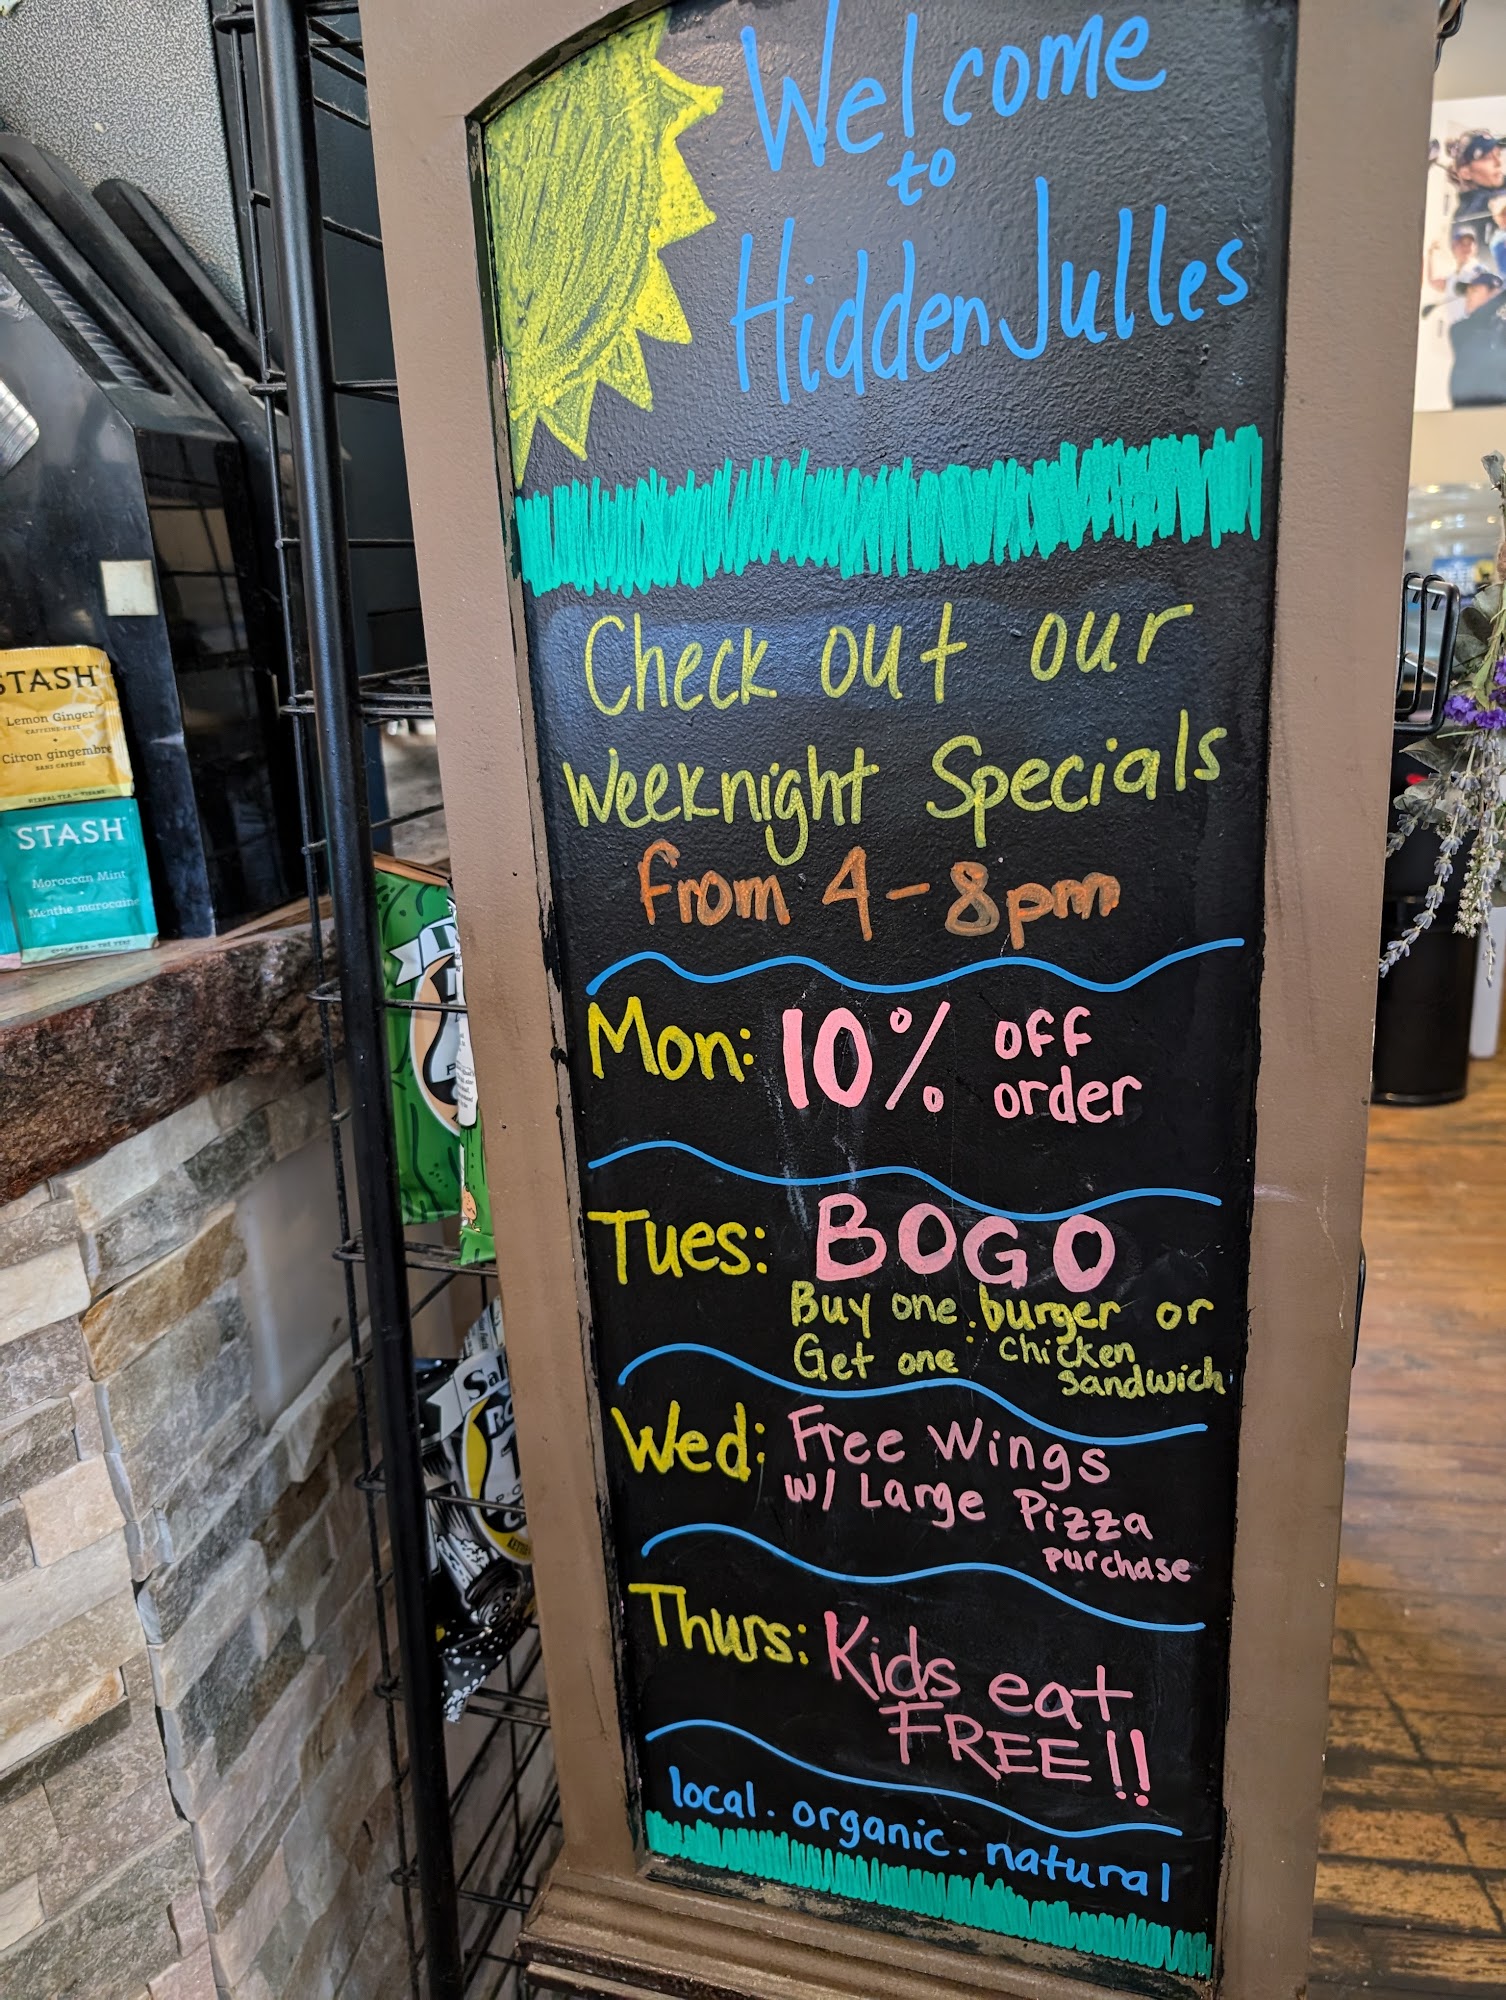 Welcome
to
Hidden Julles
Check out our
Weeknight Specials
From 4-8pm
Mon: 10% off
order
Tues: BOGO
Buy one: burger or
Get one: chicken
sandwich
Wed: Free Wings
w/ Large Pizza
purchase
Thurs: Kids eat
FREE!!
local. organic. natural
STASH
Lemon Ginger
CAFFEINE-FREE
Citron gingembre
SANS CAFÉINE
HERBAL TEA - TISANE
STASH
Moroccan Mint
Menthe marocaine
GREEN TEA - THÉ VERT